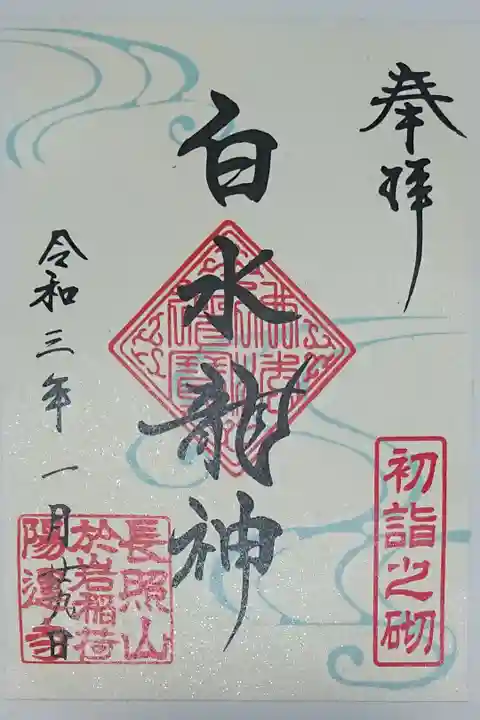 奉拝
初詣之砌
白水龍神
令和三年一月廿九日
長照山
於岩稲荷
陽運寺